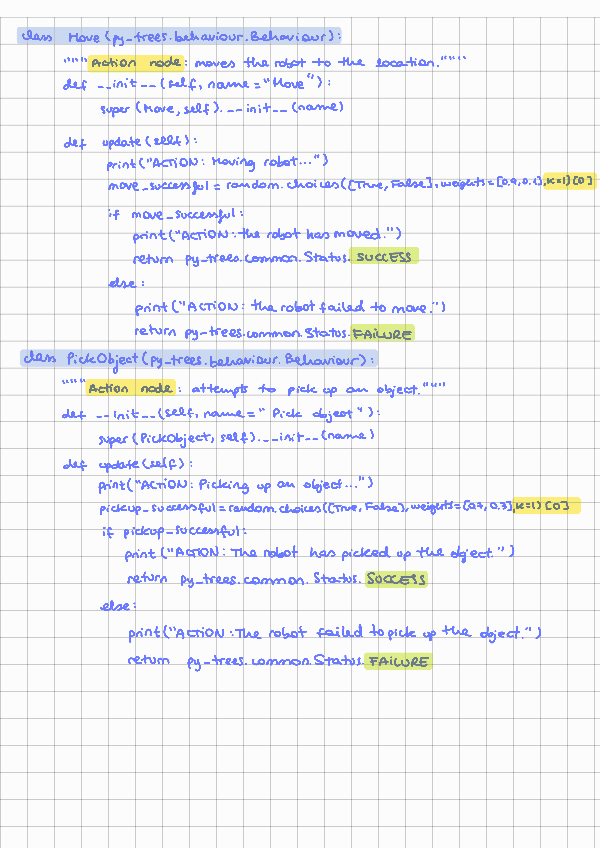 class Move(py-trees.behaviour.Behaviour):
"""Action node: moves the robot to the location."""
def __init__(self, name="Move"):
super(Move, self).__init__(name)
def update(self):
print("ACTION: Moving robot...")
move_successful = random.choices([True, False], weights=[0.9, 0.1], k=1)[0]
if move_successful:
print("ACTION: the robot has moved.")
return py-trees.common.Status.SUCCESS
else:
print("ACTION: the robot failed to move.")
return py-trees.common.Status.FAILURE
class PickObject(py-trees.behaviour.Behaviour):
"""Action node: attempts to pick up an object."""
def __init__(self, name="Pick object"):
super(PickObject, self).__init__(name)
def update(self):
print("ACTION: Picking up an object...")
pickup_successful = random.choices([True, False], weights=[0.7, 0.3], k=1)[0]
if pickup_successful:
print("ACTION: The robot has picked up the object.")
return py-trees.common.Status.SUCCESS
else:
print("ACTION: The robot failed to pick up the object.")
return py-trees.common.Status.FAILURE